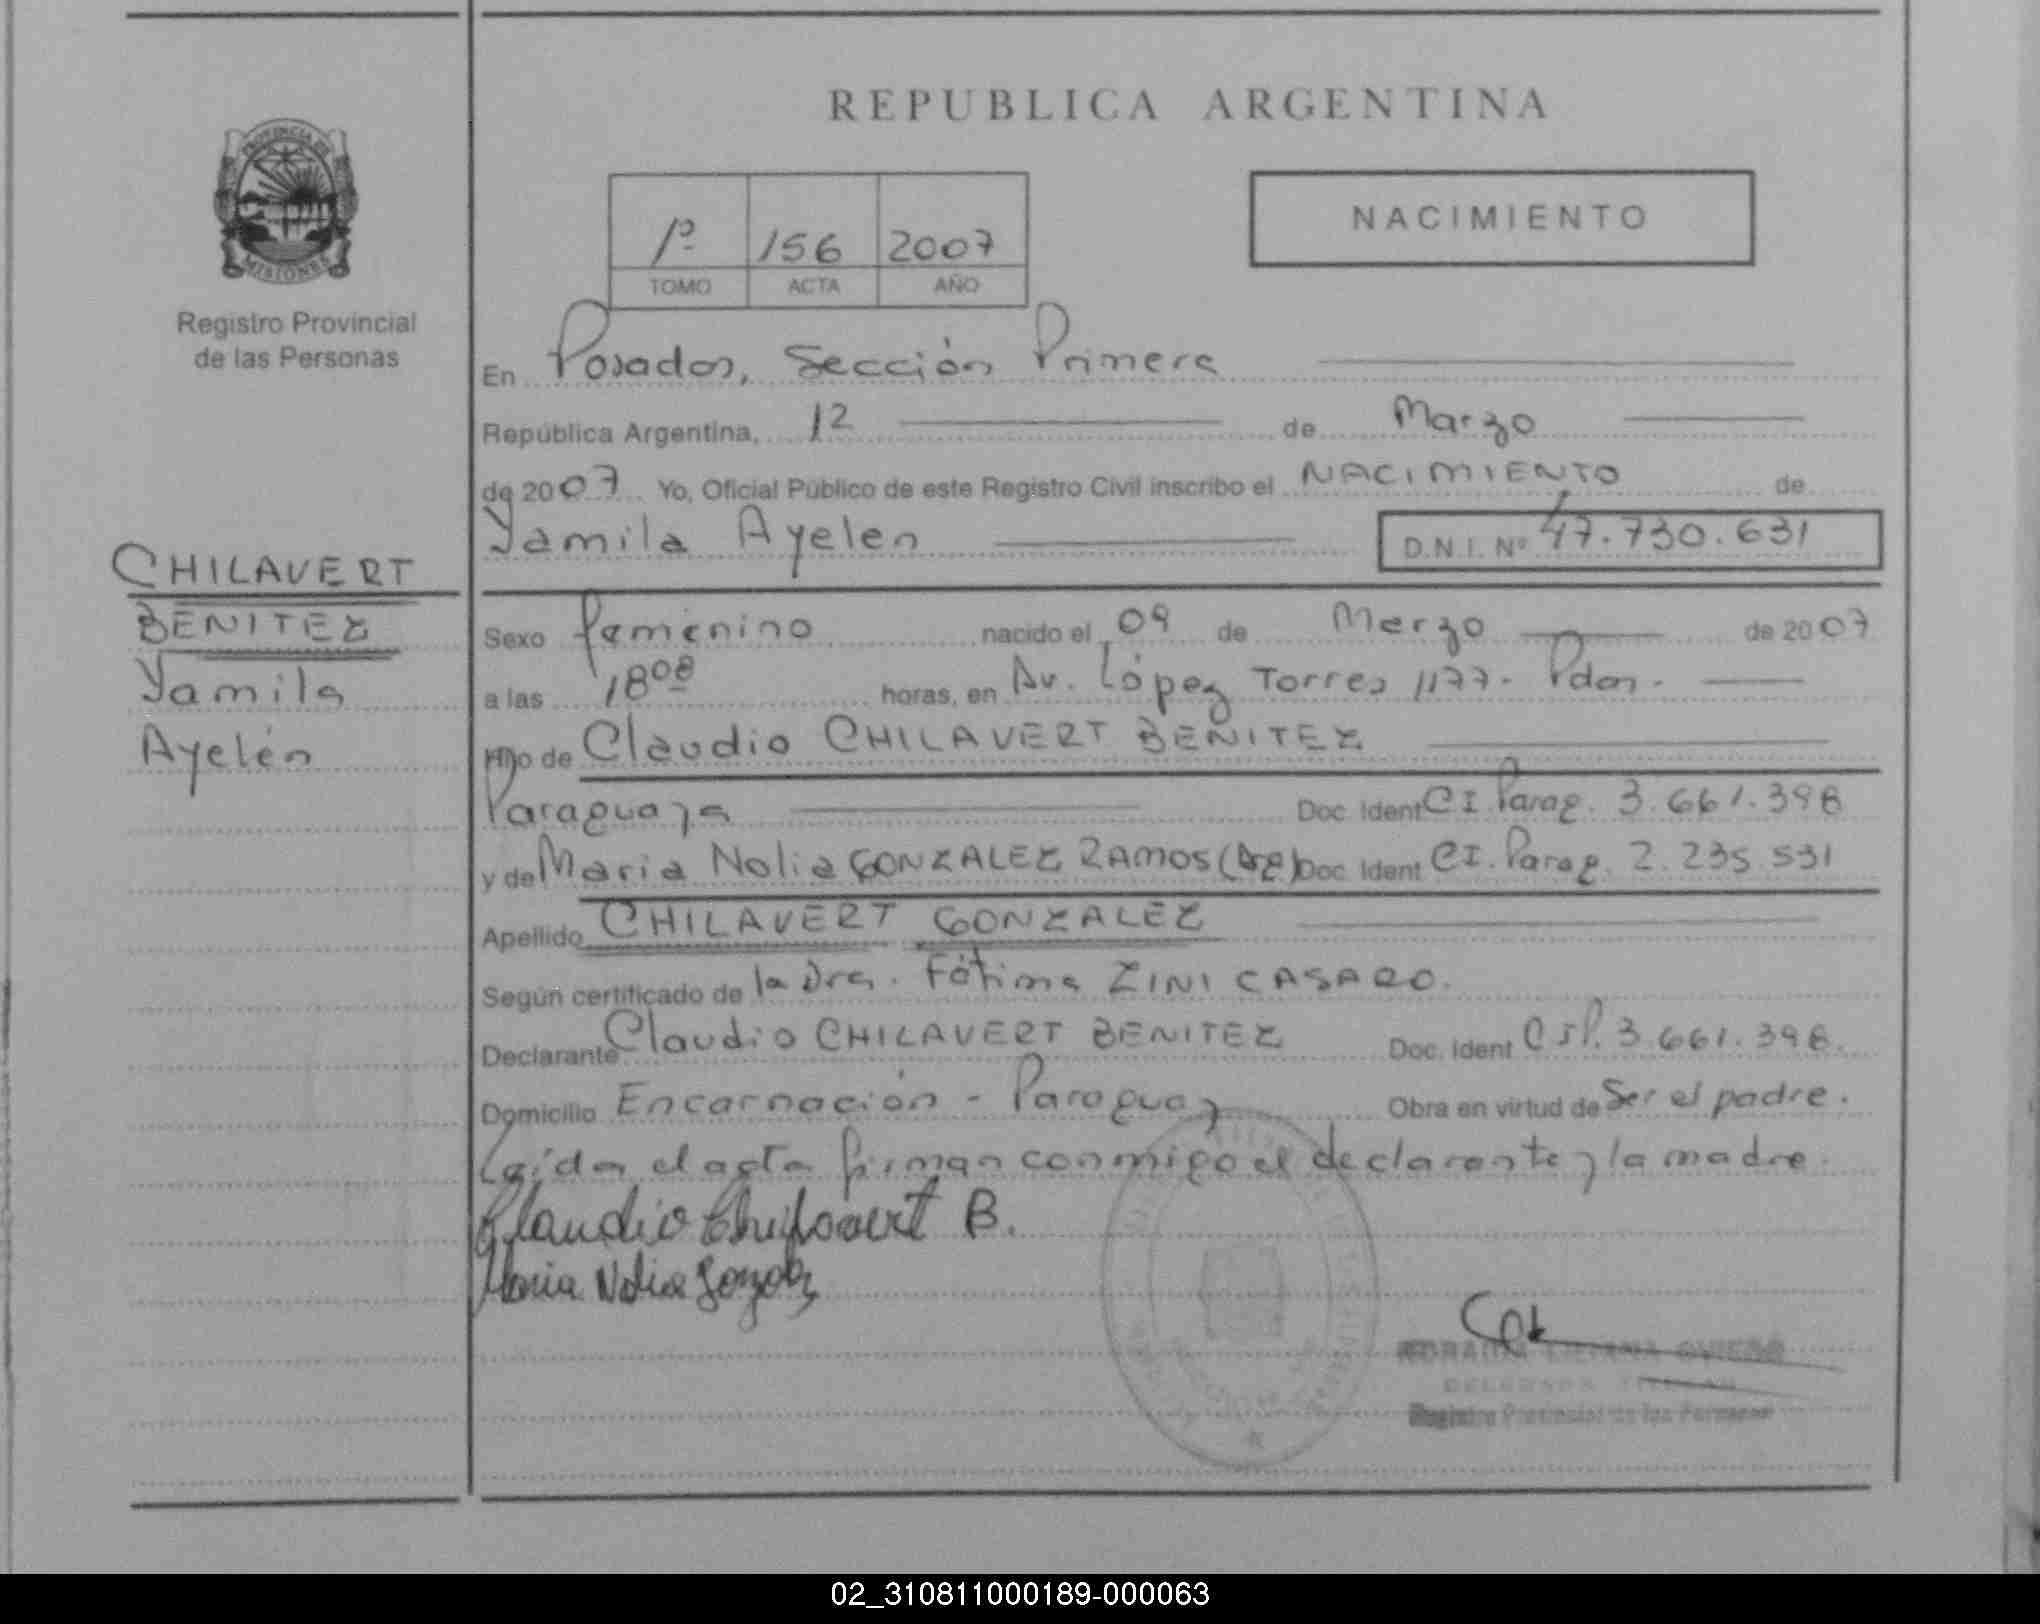 REPUBLICA ARGENTINA
PROVINCIA DE
MISIONES
Registro Provincial
de las Personas
1º 156 2007
TOMO ACTA AÑO
NACIMIENTO
En Posadas, Sección Primera
República Argentina, 12 de Marzo
de 2007 Yo, Oficial Público de este Registro Civil inscribo el NACIMIENTO de
Yamila Ayelen D.N.I. Nº 47.730.631
CHILAVERT
BENITEZ
Yamila
Ayelén
Sexo femenino nacido el 09 de Marzo de 2007
a las 18 08 horas, en Av. López Torres 1177- Pdas.
Hijo de Claudio CHILAVERT BENITEZ
Paraguaya Doc. Ident CI. Parag. 3.661.398
y de Maria Nolia GONZALEZ RAMOS (Arg) Doc. Ident CI. Parag. 2.235.531
Apellido CHILAVERT GONZALEZ
Según certificado de la Dra. Fátima ZINI CASARO.
Declarante Claudio CHILAVERT BENITEZ Doc. Ident CIP. 3.661.398.
Domicilio Encarnación - Paraguay Obra en virtud de Ser el padre.
Leída el acta firman conmigo el declarante y la madre.
Claudio Chilavert B.
Maria Nolia Gonzalez
OVIEDO
DELEGADA TITULAR
Registro Provincial de las Personas
02_310811000189-000063